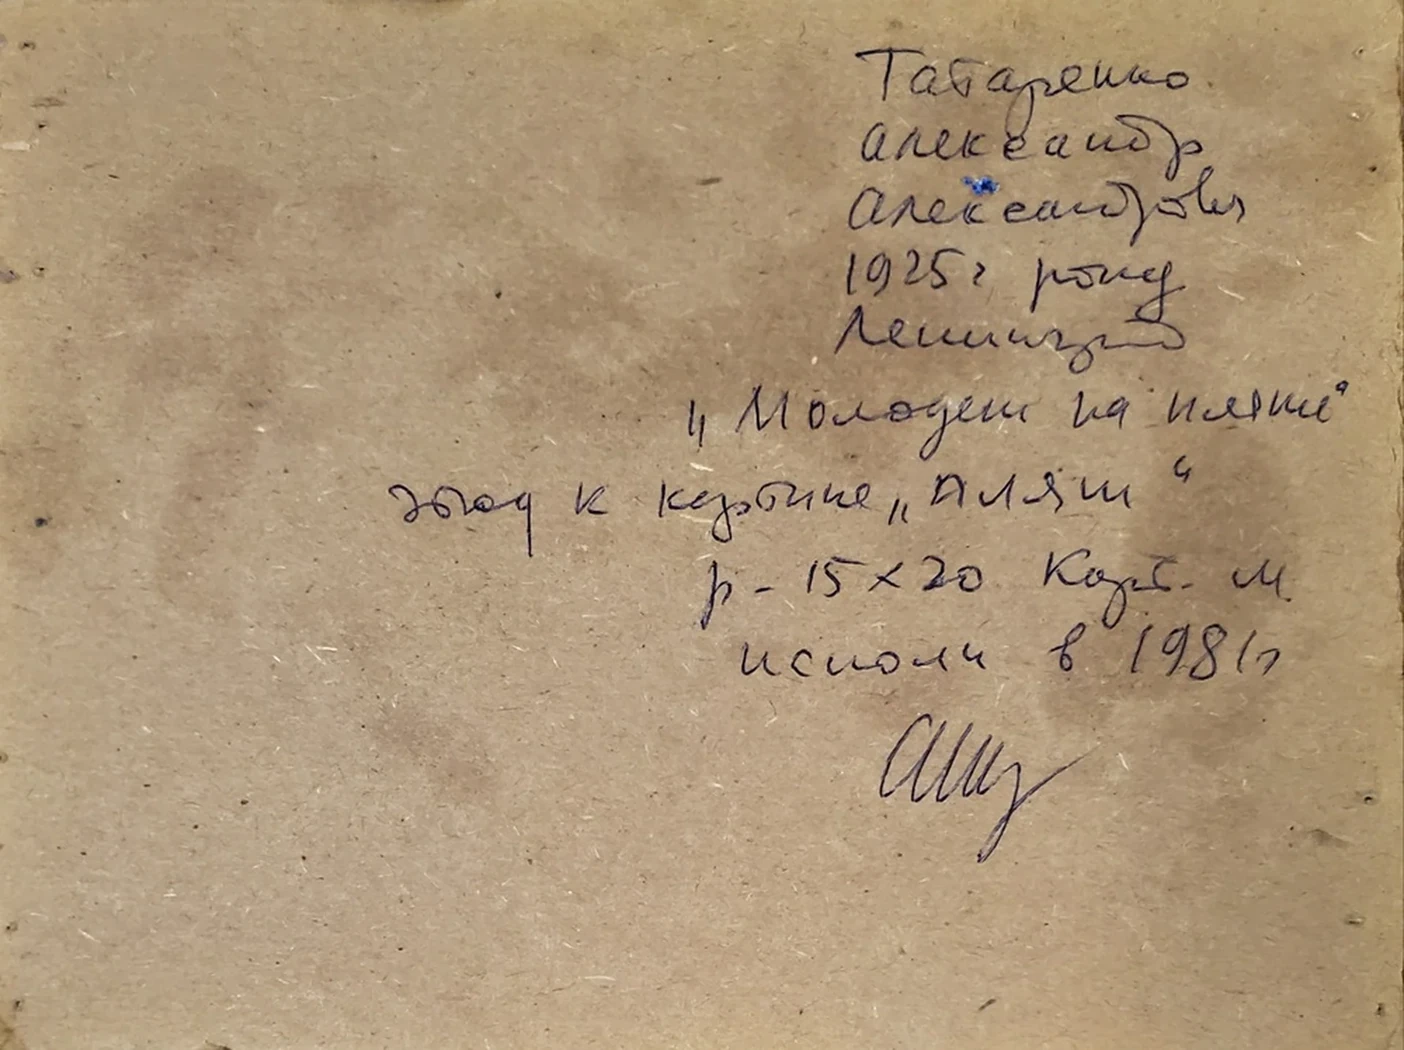 Татаренко
Александр
Александрович
1925г рожд
Ленинград
„Молодеж на пляже“
этюд к картине „Пляж“
р-15х20 Карт. м
исполн в 1981г